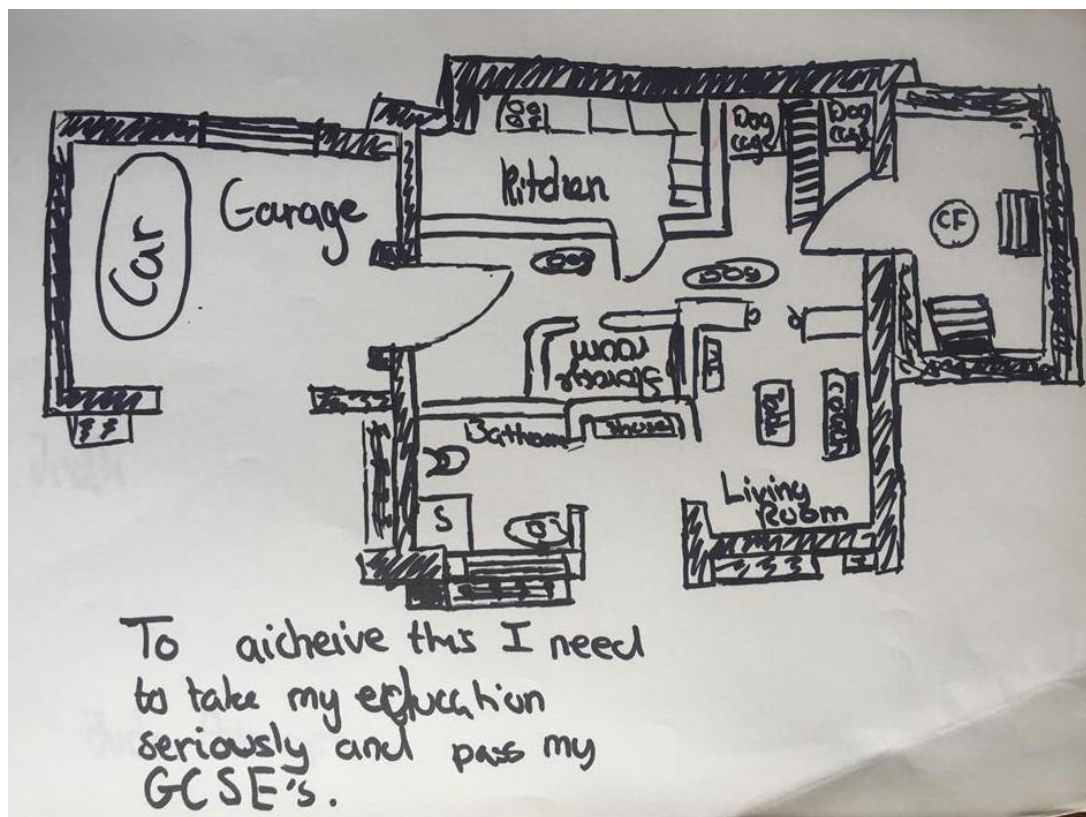 Car
Garage
Kitchen
Dog
cage
Dog
cage
CF
DOG
DOG
Storage
room
TV
Table
Couch
Bathroom
Shoes
S
Living
Room
To aicheive this I need
to take my education
seriously and pass my
GCSE's.